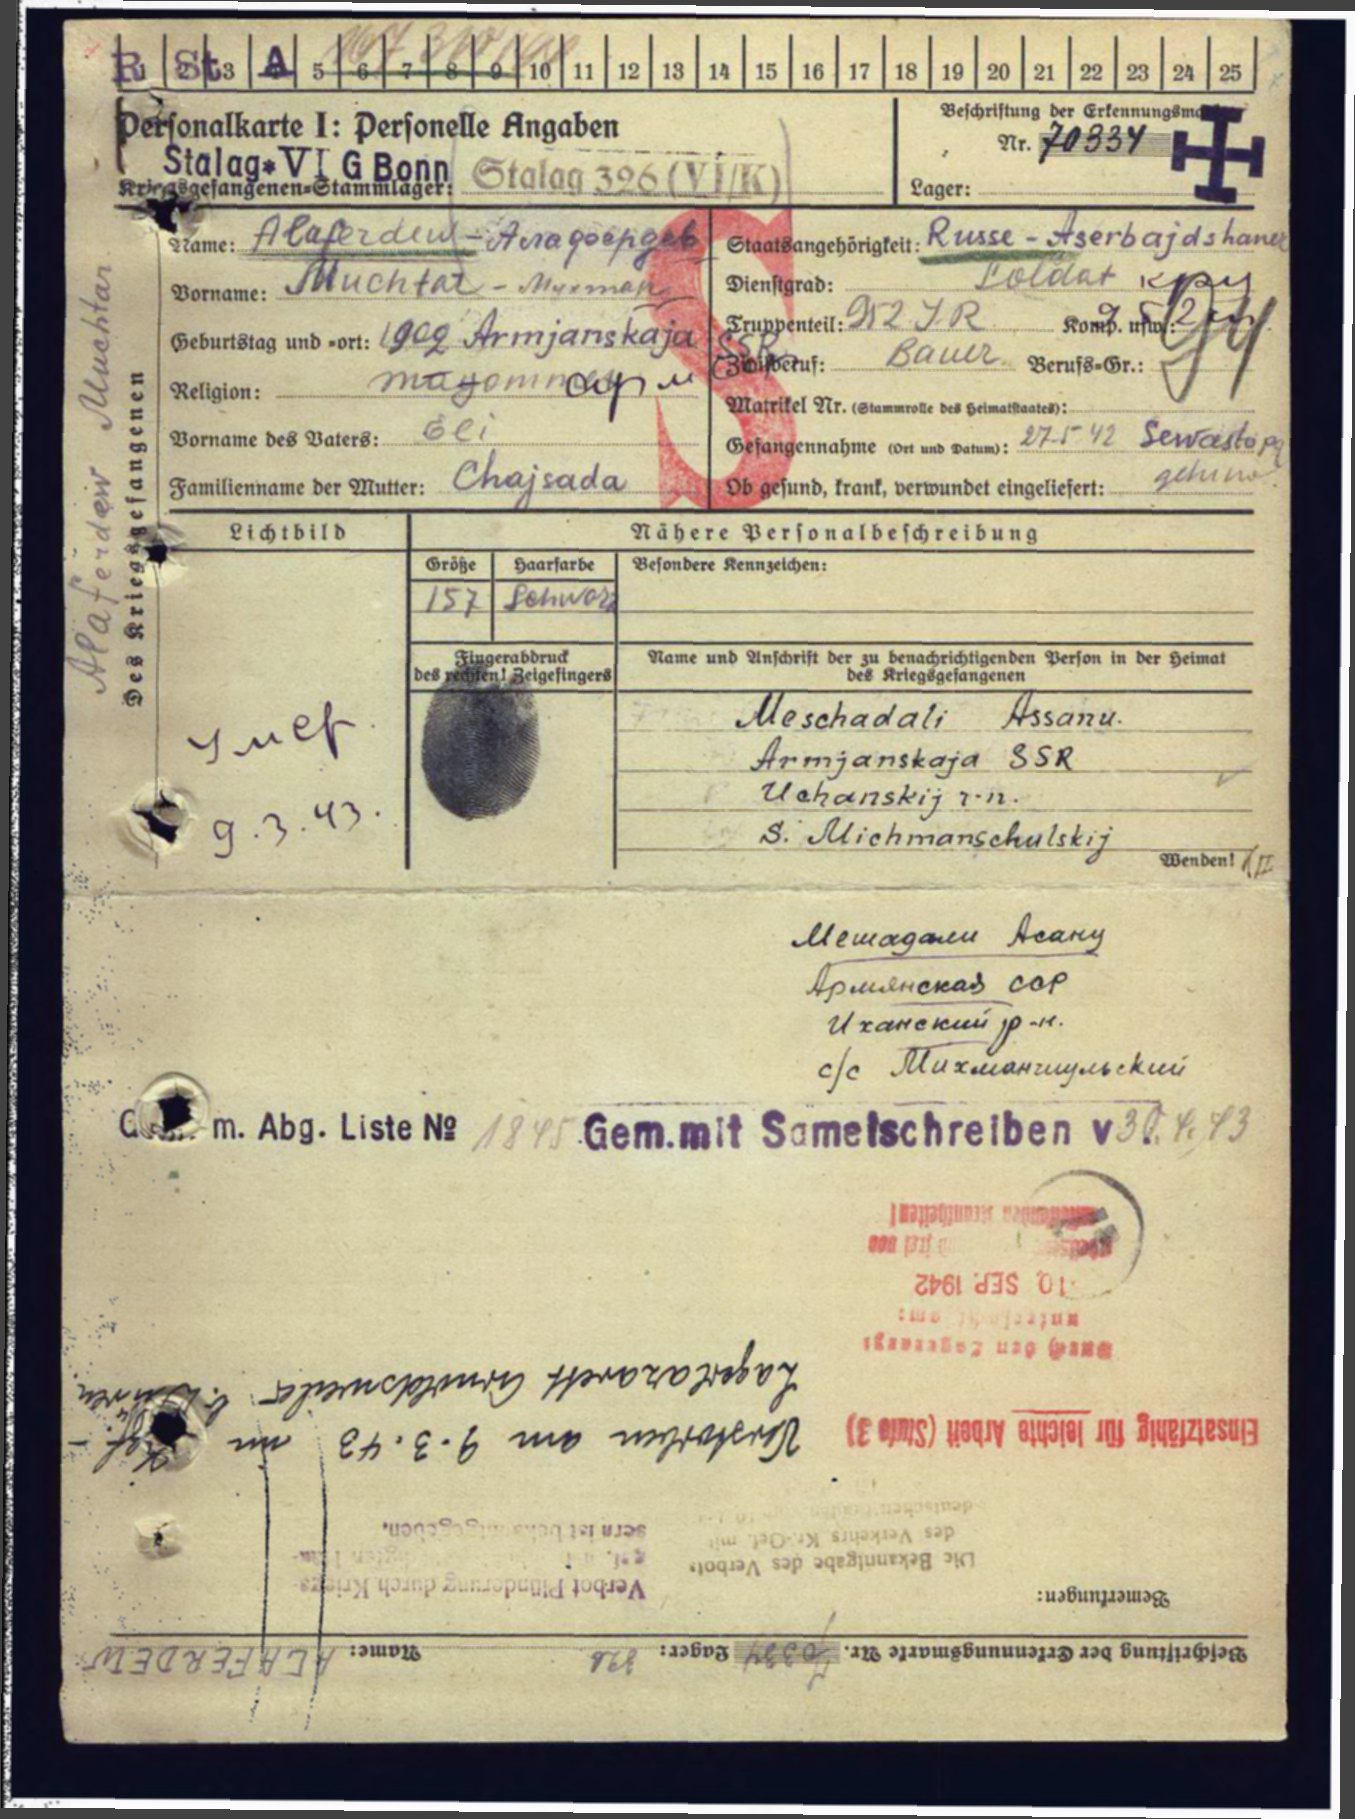 R St 3 A 5 6 7 8 9 10 11 12 13 14 15 16 17 18 19 20 21 22 23 24 25
Personalkarte I: Personelle Angaben
Beschriftung der Erkennungsma
Nr. 70334
Stalag VI G Bonn
Kriegsgefangenen-Stammlager: Stalag 326 (VI/K)
Lager:
Name: Alaferdew - Аладфердев
Vorname: Muchtar - Мухтар
Geburtstag und -ort: 1909 Armjanskaja SSR
Religion:
Vorname des Vaters: Eli
Familienname der Mutter: Chajsada
S
Staatsangehörigkeit: Russe - Aserbajdshaner
Dienstgrad: Soldat кра
Truppenteil: 952 IR Komp. usw.:
Zivilberuf: Bauer Berufs-Gr.:
Matrikel Nr. (Stammrolle des Heimatstaates):
Gefangennahme (Ort und Datum): 27.5.42 Sewastopol
Ob gesund, krank, verwundet eingeliefert:
Des Kriegsgefangenen
Alaferdew Muchtar
Lichtbild
Nähere Personalbeschreibung
Größe
Haarfarbe
Besondere Kennzeichen:
157
Schwarz
Fingerabdruck
des rechten! Zeigefingers
Name und Anschrift der zu benachrichtigenden Person in der Heimat
des Kriegsgefangenen
Умер
9.3.43.
Meschadali Assanu.
Armjanskaja SSR
Uchanskij r-n.
S. Michmanschulskij
Wenden!
Мешадали Асану
Армянская ССР
Уханский р-н.
с/с Михманчульский
m. Abg. Liste № 1845 Gem.mit Sametschreiben v. 30.4.43
10. SEP. 1942
Einsatzfähig für leichte Arbeit (Stufe 3)
Verstorben am 9.3.43 im Kgf.-
Lagerlazarett Arnoldsweiler b. Düren.
Die Bekanntgabe des Verbots
des Verkehrs Kr.-Gef. mit
Verbot Plünderung durch Kriegs-
sern ist bekanntgegeben.
Bemerkungen:
Beschriftung der Erkennungsmarke Nr. 70334 Lager: 326 Name: ALAFERDEW